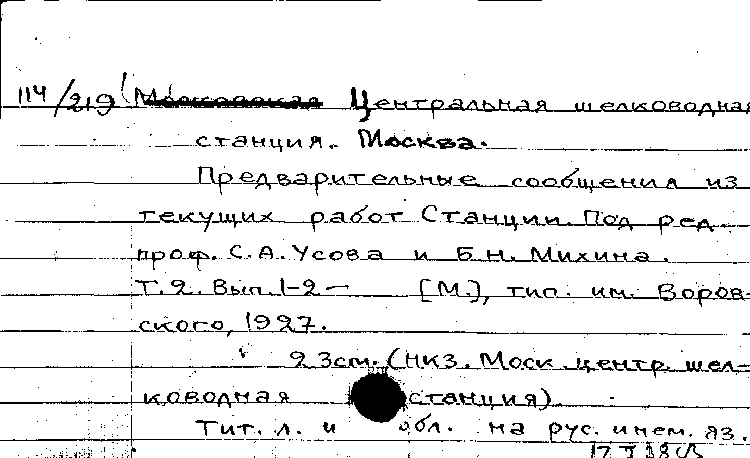 114/219 Центральная шелководная
станция. Москва.
Предварительные сообщения из
текущих работ Станции. Под ред.
проф. С.А. Усова и Б.Н. Михина.
Т.2. Вып. 1-2 — [М.], тип. им. Воров-
ского, 1927.
23см. (НКЗ. Моск. центр. шел-
ководная станция).
Тит. л. и обл. на рус. и нем. яз.